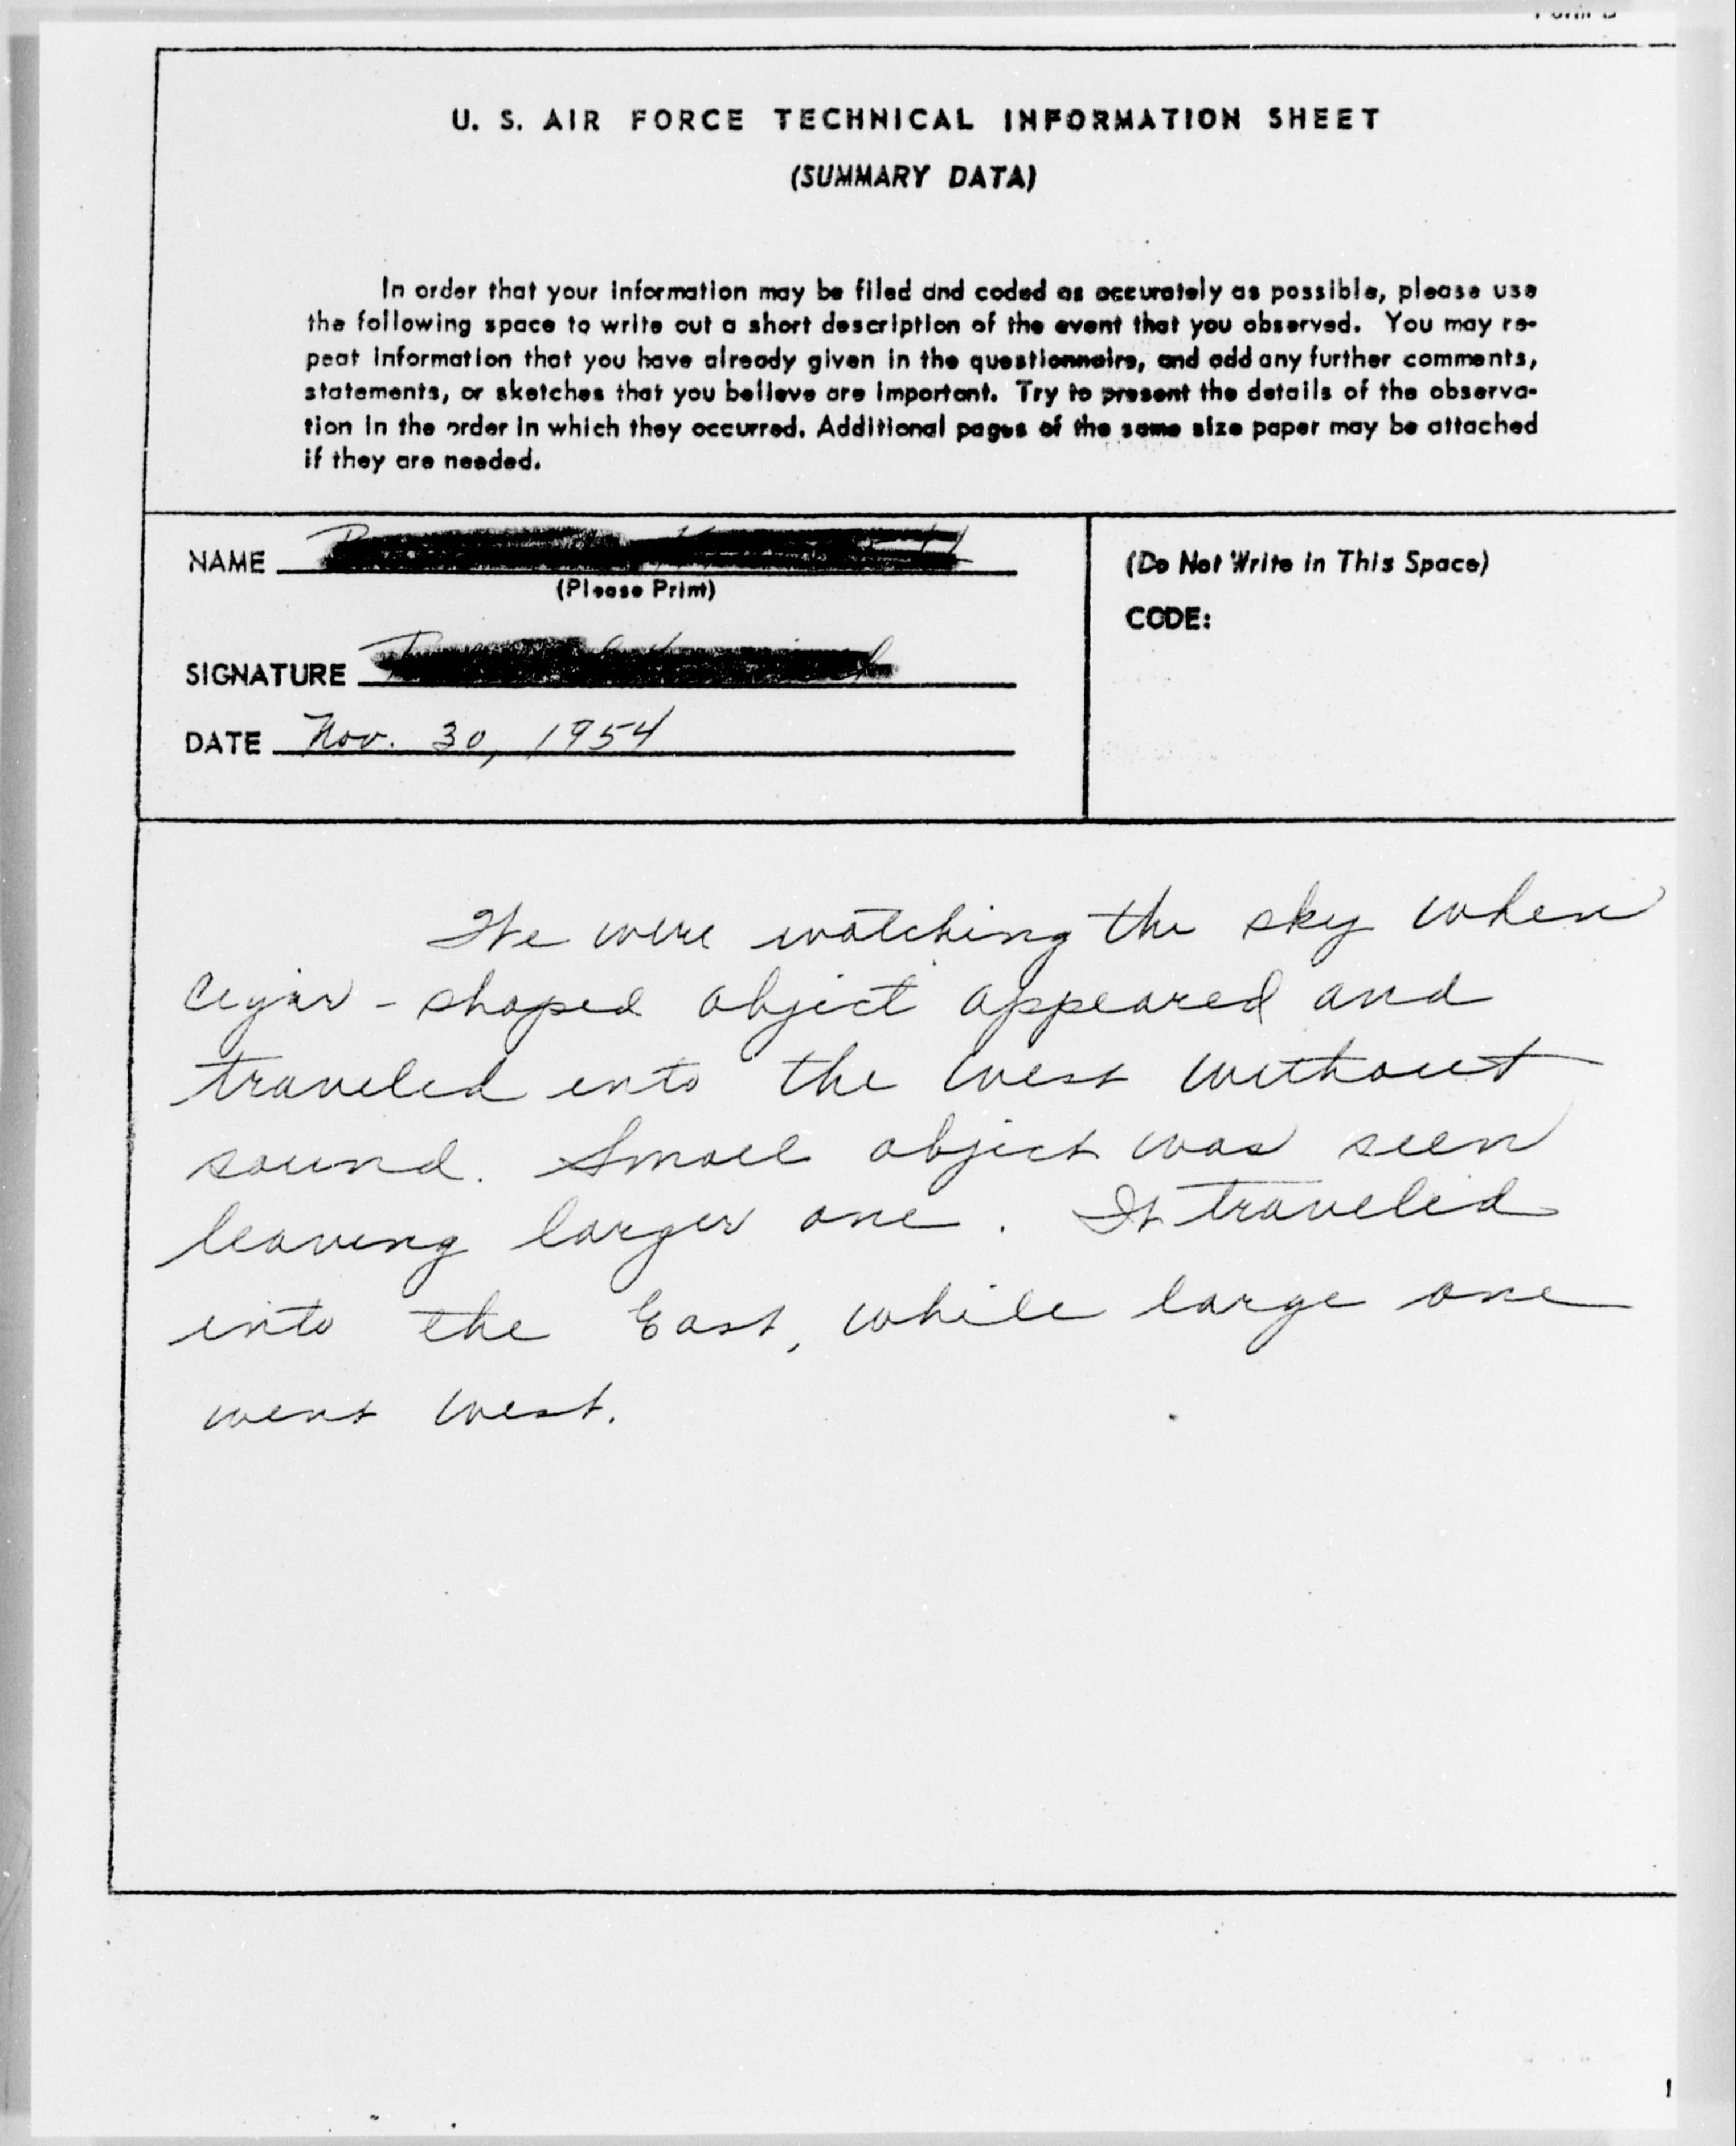 U. S. AIR FORCE TECHNICAL INFORMATION SHEET
(SUMMARY DATA)
In order that your information may be filed and coded as accurately as possible, please use
the following space to write out a short description of the event that you observed. You may re-
peat information that you have already given in the questionnaire, and add any further comments,
statements, or sketches that you believe are important. Try to present the details of the observa-
tion in the order in which they occurred. Additional pages of the same size paper may be attached
if they are needed.
NAME
(Please Print)
SIGNATURE
DATE Nov. 30, 1954
(Do Not Write in This Space)
CODE:
We were watching the sky when
cigar - shaped object appeared and
traveled into the west without
sound. Small object was seen
leaving larger one. It traveled
into the East, while large one
went west.